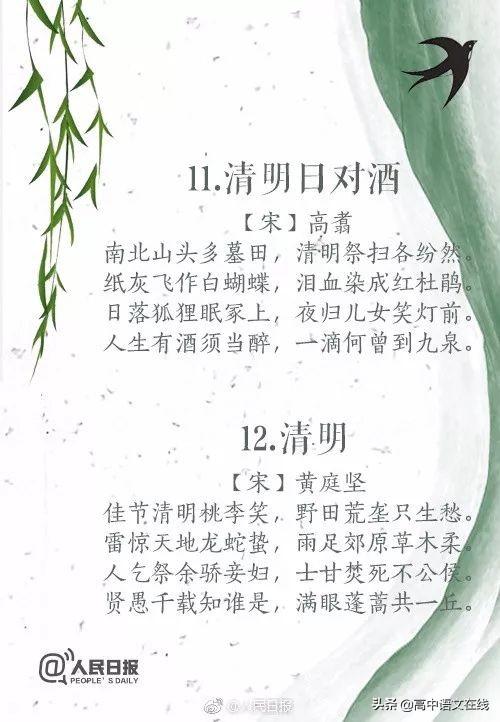 11.清明日对酒
【宋】高翥
南北山头多墓田，清明祭扫各纷然。
纸灰飞作白蝴蝶，泪血染成红杜鹃。
日落狐狸眠冢上，夜归儿女笑灯前。
人生有酒须当醉，一滴何曾到九泉。
12.清明
【宋】黄庭坚
佳节清明桃李笑，野田荒垄只生愁。
雷惊天地龙蛇蛰，雨足郊原草木柔。
人乞祭余骄妾妇，士甘焚死不公侯。
贤愚千载知谁是，满眼蓬蒿共一丘。
@人民日报
PEOPLE'S DAILY
@人民日报
头条@高中语文在线